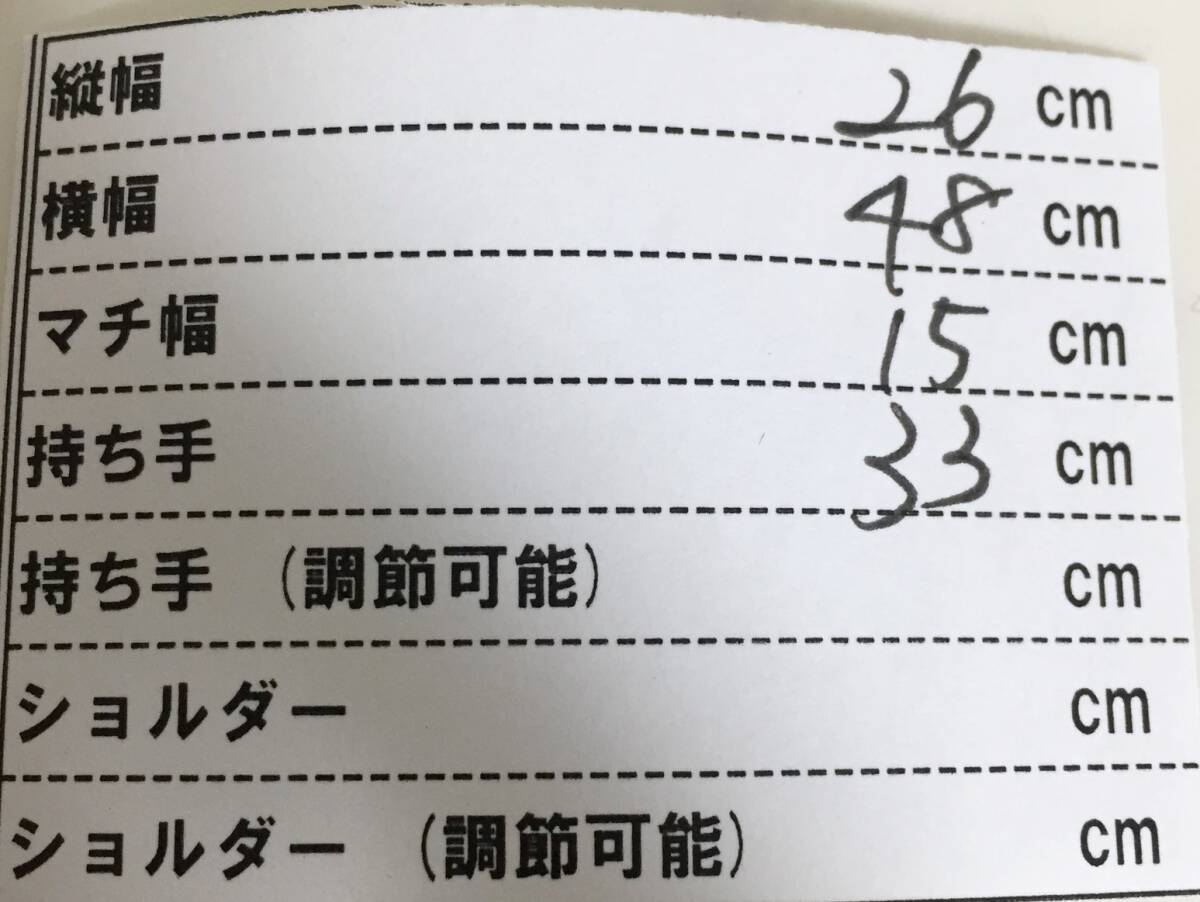 縦幅 26 cm
横幅 48 cm
マチ幅 15 cm
持ち手 33 cm
持ち手 (調節可能) cm
ショルダー cm
ショルダー (調節可能) cm